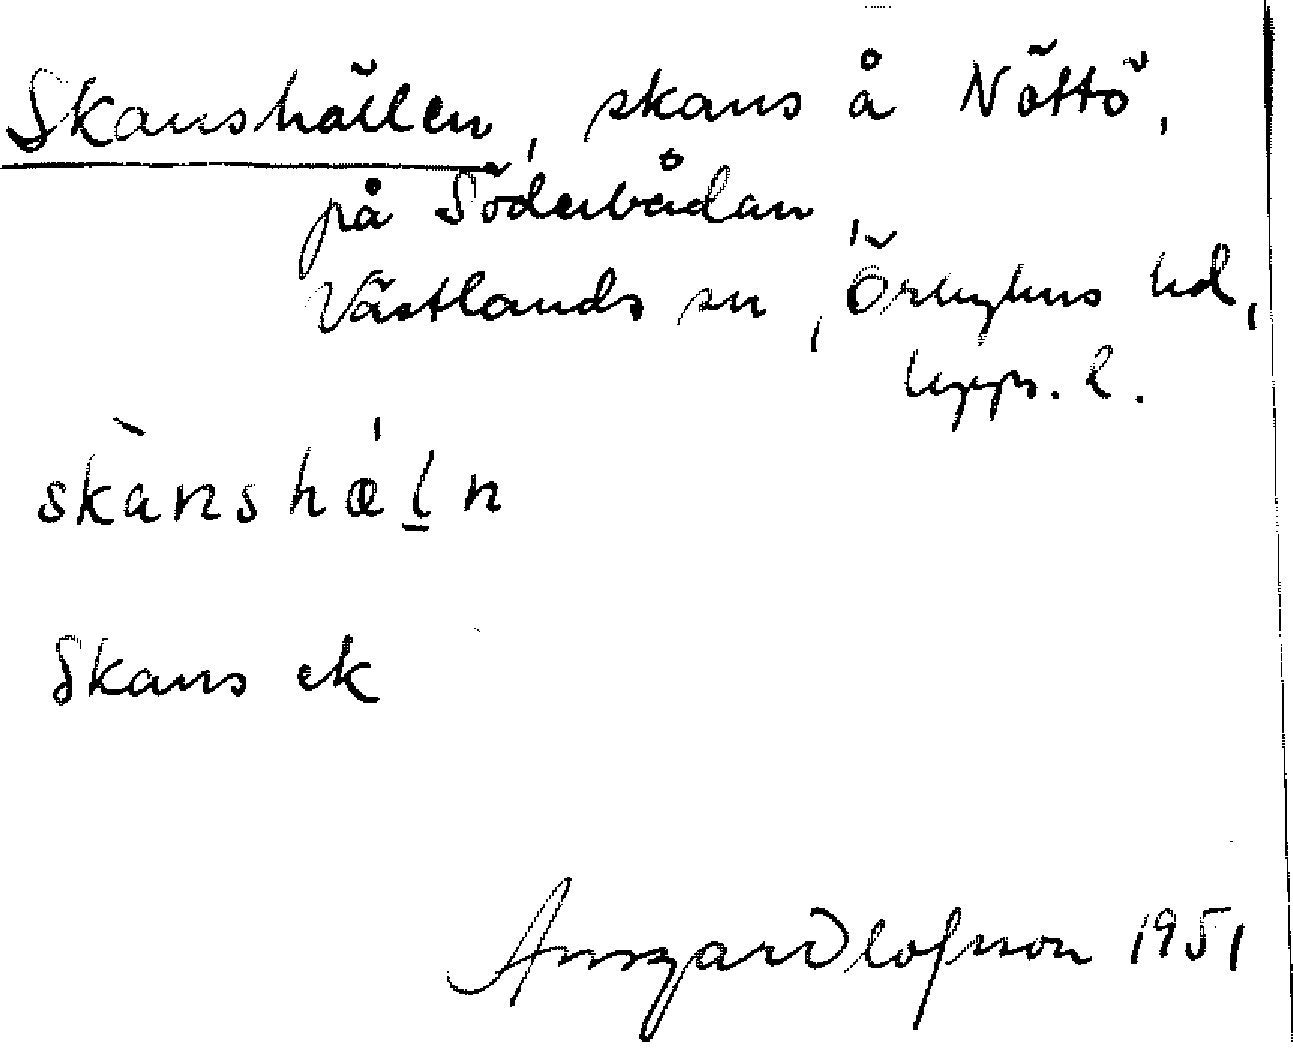 Skanshällen, skans å Nöttö,
på Söderbådan
Västlands sn, Örbyhus hd,
Upps. l.
skànshǽl̠n
Skans ek
Ansgar Olofsson 1951